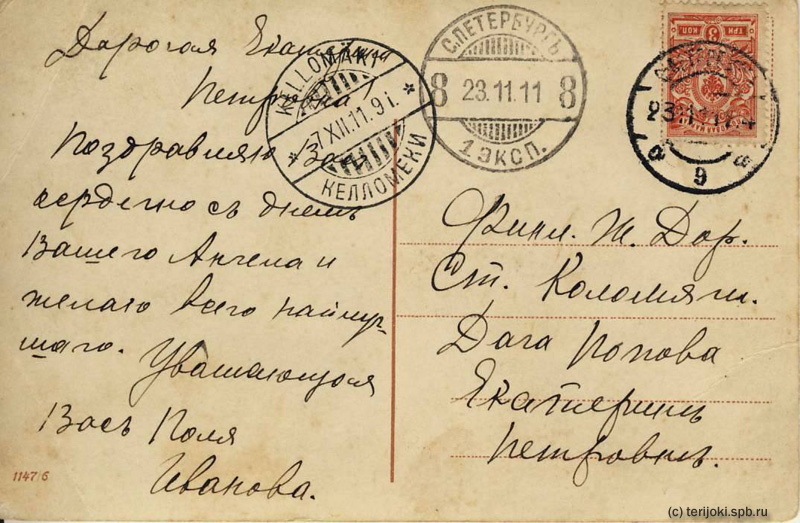 Дорогая Екатерина
Петровна!
Поздравляю Васъ
сердечно съ днемъ
Вашего Ангела и
желаю всего найлуч-
шаго. Уважающая
Васъ Поля
Иванова.
1147/6
KELLOMÄKI
7 XII.11. 9 i.
КЕЛЛОМЕКИ
С.ПЕТЕРБУРГЪ
8 23.11.11 8
1 ЭКСП.
3 КОП
ТРИ КОП
9
Финл. Ж. Дор.
Ст. Коломяги.
Дача Попова
Екатеринѣ
Петровнѣ.
(c) terijoki.spb.ru